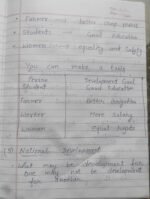 • Farmer and better crop prices
• Students and Good Education
• Women equality and Safety
You can make a table
Person Development Goal
Student Good Education
Farmer Better irrigation
Worker More Salary
Woman Equal rights
(3) National Development
• What may be development for
one may not be development
for another